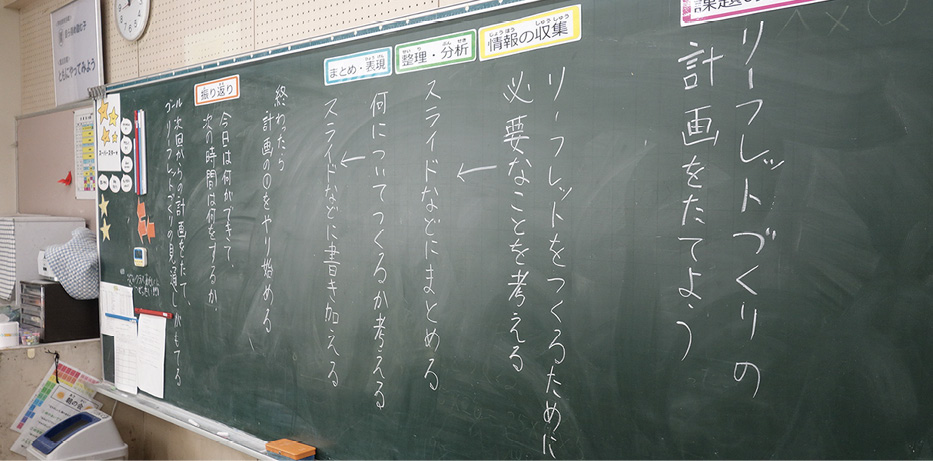 課題の
リーフレットづくりの
計画をたてよう
情報の収集
じょうほう しゅうしゅう
リーフレットをつくるために
必要なことを考える
整理・分析
せいり ぶんせき
←
スライドなどにまとめる
まとめ・表現
ひょうげん
何についてつくるか考える
←
スライドなどに書き加える
終わったら
計画の①をやり始める
振り返り
今日は何ができて、
次の時間は何をするか、
ゴール
次回からの計画をたて、
リーフレットづくりの見通しがもてる
スーパースター
ともにやってみよう